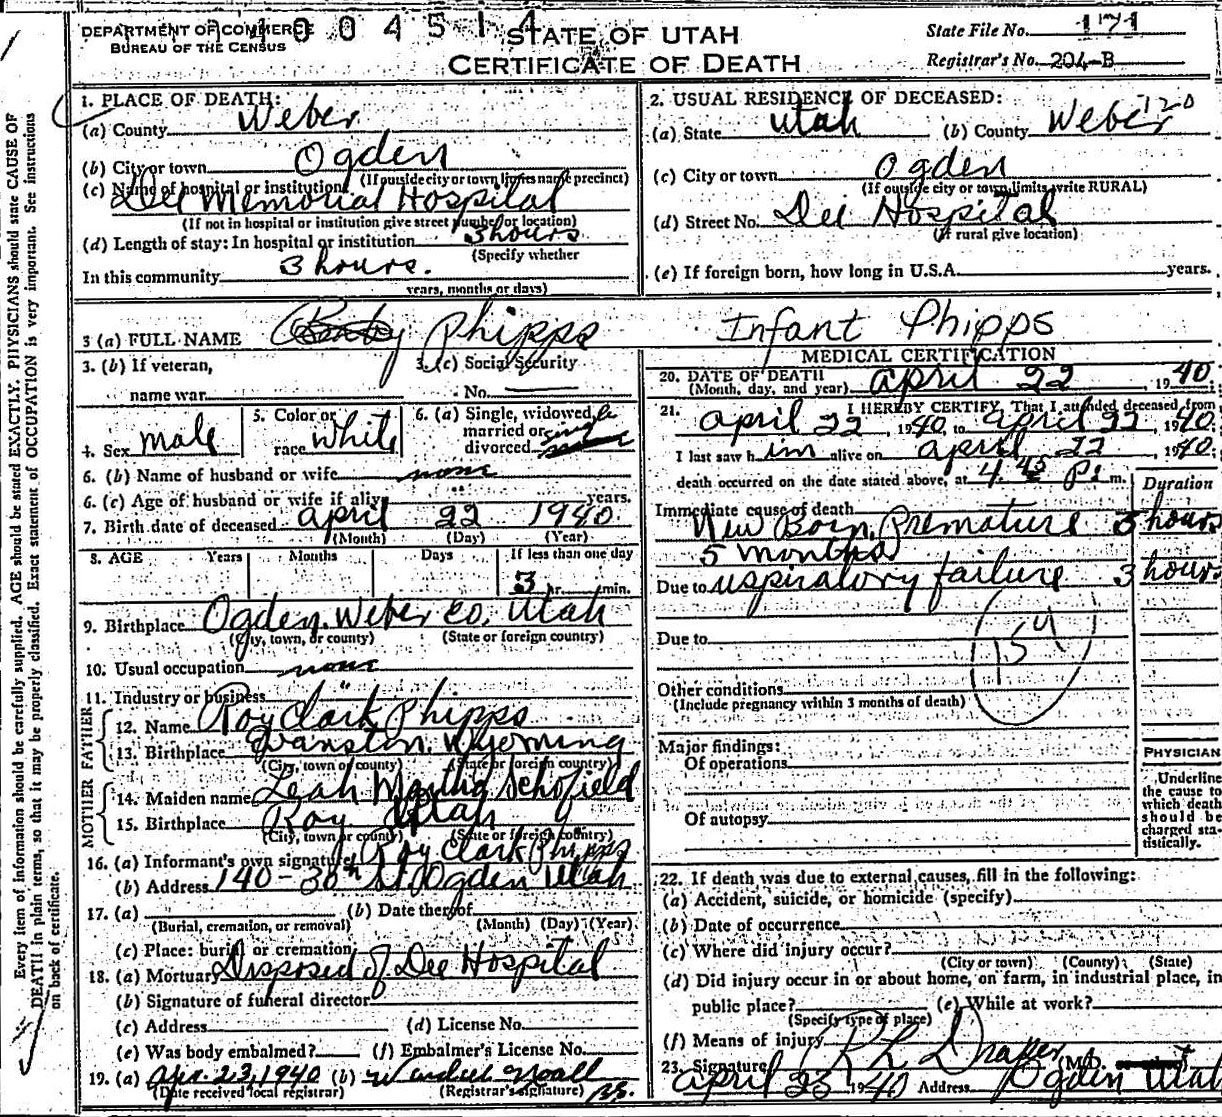 1004514
DEPARTMENT OF COMMERCE
BUREAU OF THE CENSUS
STATE OF UTAH
CERTIFICATE OF DEATH
State File No. 171
Registrar's No. 204-B
Every item of information should be carefully supplied. AGE should be stated EXACTLY. PHYSICIANS should state CAUSE OF
DEATH in plain terms, so that it may be properly classified. Exact statement of OCCUPATION is very important. See instructions
on back of certificate.
1. PLACE OF DEATH:
(a) County Weber
(b) City or town Ogden
(If outside city or town limits name precinct)
(c) Name of hospital or institution
Dee Memorial Hospital
(If not in hospital or institution give street number or location)
(d) Length of stay: In hospital or institution 3 hours
(Specify whether
In this community 3 hours.
years, months or days)
2. USUAL RESIDENCE OF DECEASED:
(a) State Utah (b) County Weber 120
(c) City or town Ogden
(If outside city or town limits write RURAL)
(d) Street No. Dee Hospital
(If rural give location)
(e) If foreign born, how long in U.S.A. years.
3 (a) FULL NAME Phipps Infant Phipps
3. (b) If veteran,
name war
3. (c) Social Security
No.
4. Sex Male
5. Color or
race White
6. (a) Single, widowed,
married or
divorced single
6. (b) Name of husband or wife none
6. (c) Age of husband or wife if alive years.
7. Birth date of deceased April 22 1940
(Month) (Day) (Year)
8. AGE Years Months Days If less than one day
3 hr. min.
9. Birthplace Ogden. Weber Co. Utah
(City, town, or county) (State or foreign country)
10. Usual occupation none
11. Industry or business "
FATHER
12. Name Roy Clark Phipps
13. Birthplace Evanston, Wyoming
(City, town or county) (State or foreign country)
MOTHER
14. Maiden name Leah Martha Schofield
15. Birthplace Roy Utah
(City, town or county) (State or foreign country)
16. (a) Informant's own signature Roy Clark Phipps
(b) Address 140-30th St. Ogden Utah
17. (a) (b) Date thereof
(Burial, cremation, or removal) (Month) (Day) (Year)
(c) Place: burial or cremation
18. (a) Mortuary Disposed of Dee Hospital
(b) Signature of funeral director
(c) Address (d) License No.
(e) Was body embalmed? (f) Embalmer's License No.
19. (a) Apr. 23, 1940 (b)
(Date received local registrar) (Registrar's signature)
MEDICAL CERTIFICATION
20. DATE OF DEATH
(Month, day, and year) April 22, 1940
21. I HEREBY CERTIFY, That I attended deceased from
April 22, 1940, to April 22, 1940;
I last saw him alive on April 22 1940;
death occurred on the date stated above, at 4.45 P. m.
Duration
Immediate cause of death
New Born, Premature 3 hours
5 months
Due to respiratory failure 3 hours
Due to
154
Other conditions
(Include pregnancy within 3 months of death)
Major findings:
Of operations
Of autopsy
PHYSICIAN
Underline
the cause to
which death
should be
charged sta-
tistically.
22. If death was due to external causes, fill in the following:
(a) Accident, suicide, or homicide (specify)
(b) Date of occurrence
(c) Where did injury occur?
(City or town) (County) (State)
(d) Did injury occur in or about home, on farm, in industrial place, in
public place? (e) While at work?
(Specify type of place)
(f) Means of injury
23. Signature R L Draper M.D.
April 23 1940 Address Ogden Utah